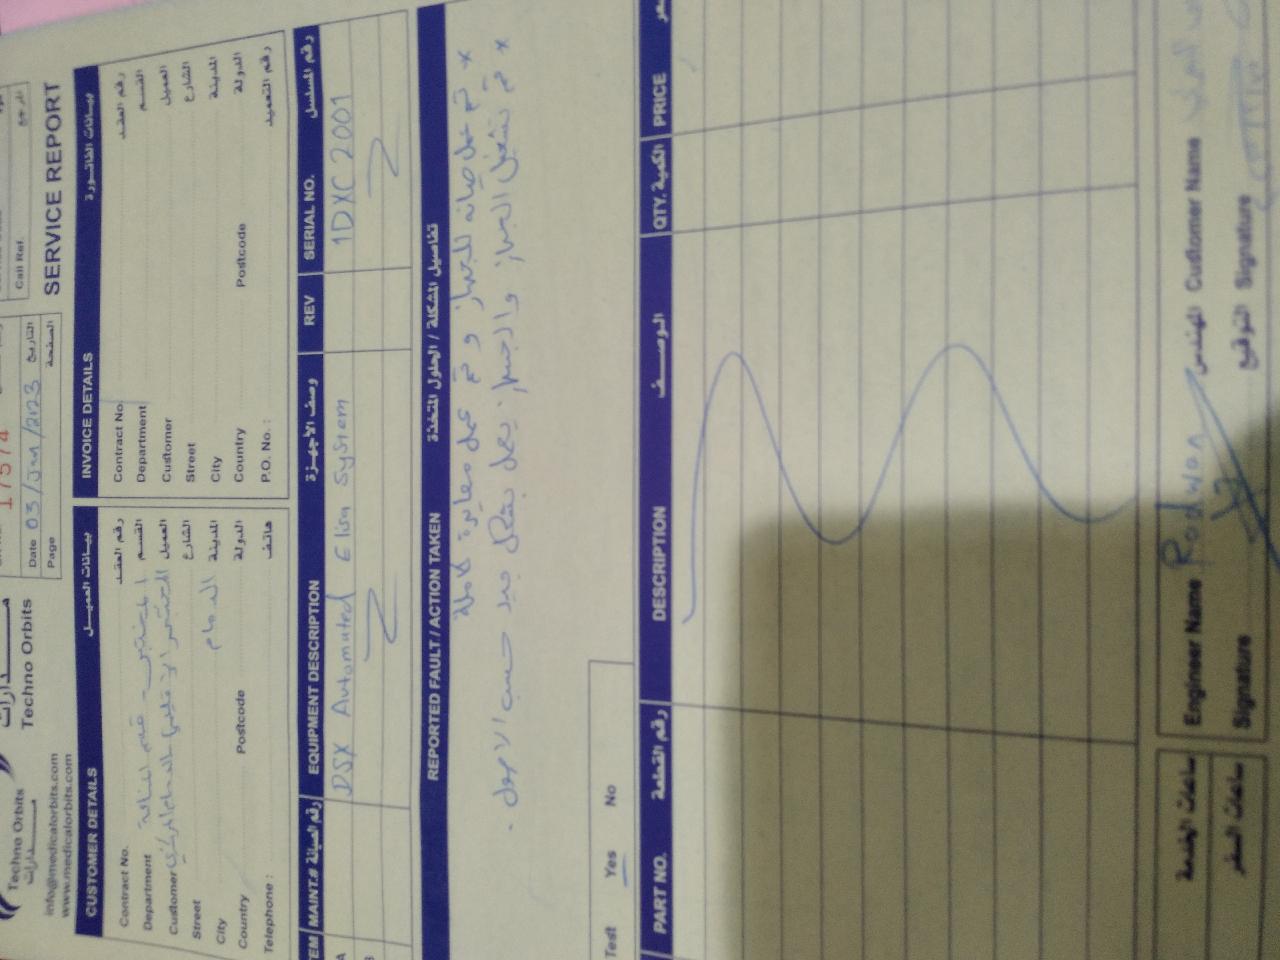 Techno Orbits
مدارات
info@medicalorbits.com
www.medicalorbits.com
مدارات
Techno Orbits
17574
Date 03/Jan/2023 التاريخ
Page الصفحة
Call Ref. المرجع
SERVICE REPORT
CUSTOMER DETAILS بيانات العميل
Contract No. رقم العقد
Department المختبر - قسم المناعة القسم
Customer المختبر الإقليمي بالدمام المركزي العميل
Street الشارع
City الدمام المدينة
Country Postcode الدولة
Telephone : هاتف
INVOICE DETAILS بيانات الفاتورة
Contract No. رقم العقد
Department القسم
Customer العميل
Street الشارع
City المدينة
Country Postcode الدولة
P.O. No. : رقم التعميد
MAINT.# رقم الصيانة EQUIPMENT DESCRIPTION وصف الأجهزة REV SERIAL NO. رقم المسلسل
A DSX Automated Elisa System 1DXC 2001
REPORTED FAULT / ACTION TAKEN تفاصيل المشكلة / الحلول المتخذة
* تم عمل صيانه للجهاز و تم عمل معايرة كاملة
* تم تشغيل الجهاز والجهاز يعمل بشكل جيد حسب الاصول .
Test Yes No
PART NO. رقم القطعة DESCRIPTION الوصف QTY. الكمية PRICE
ساعات الخدمة
ساعات السفر
Engineer Name Radwan المهندس
Signature التوقيع
Customer Name
Signature